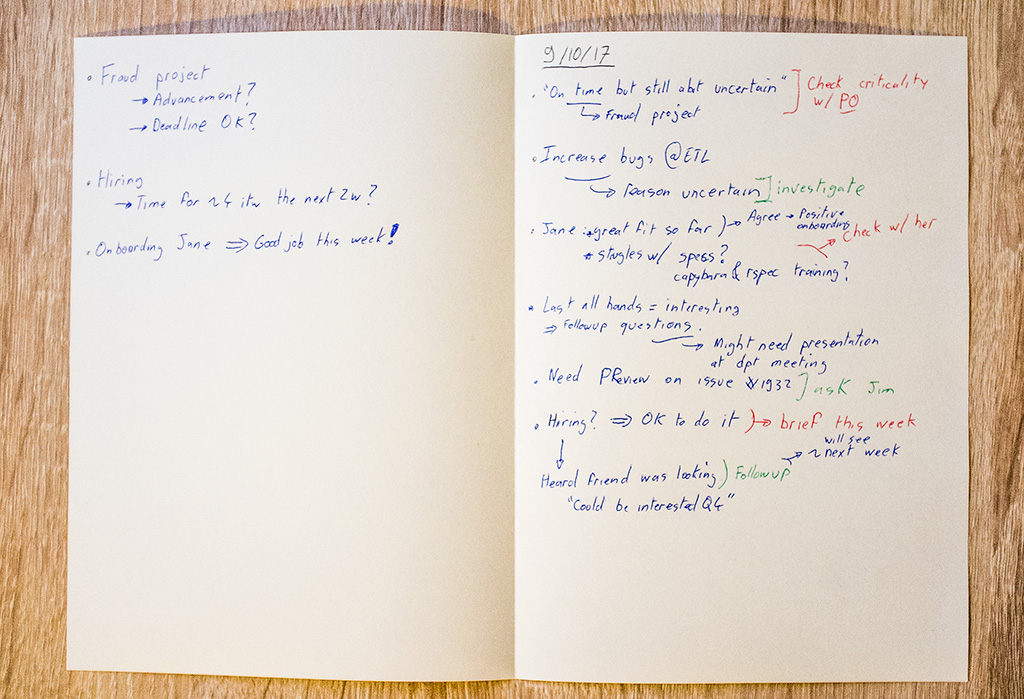 • Fraud project
→ Advancement?
→ Deadline OK?
• Hiring
→ Time for ~4 itw the next 2w?
• Onboarding Jane ⇒ Good job this week!
9/10/17
• "On time but still abt uncertain" ] Check criticality
w/ PO
↳ Fraud project
• Increase bugs @ETL
↳ reason uncertain ] investigate
• Jane: great fit so far ) → Agree → Positive
onboarding
→ Check w/ her
* strugles w/ specs?
capybara & rspec training?
• Last all hands = interesting
⇒ Followup questions.
→ Might need presentation
at dpt meeting
• Need PReview on issue #1932 ] ask Jim
• Hiring? ⇒ OK to do it ) → brief this week
↓
will see
→ ~ next week
Heard friend was looking ) Followup
"Could be interested Q4"